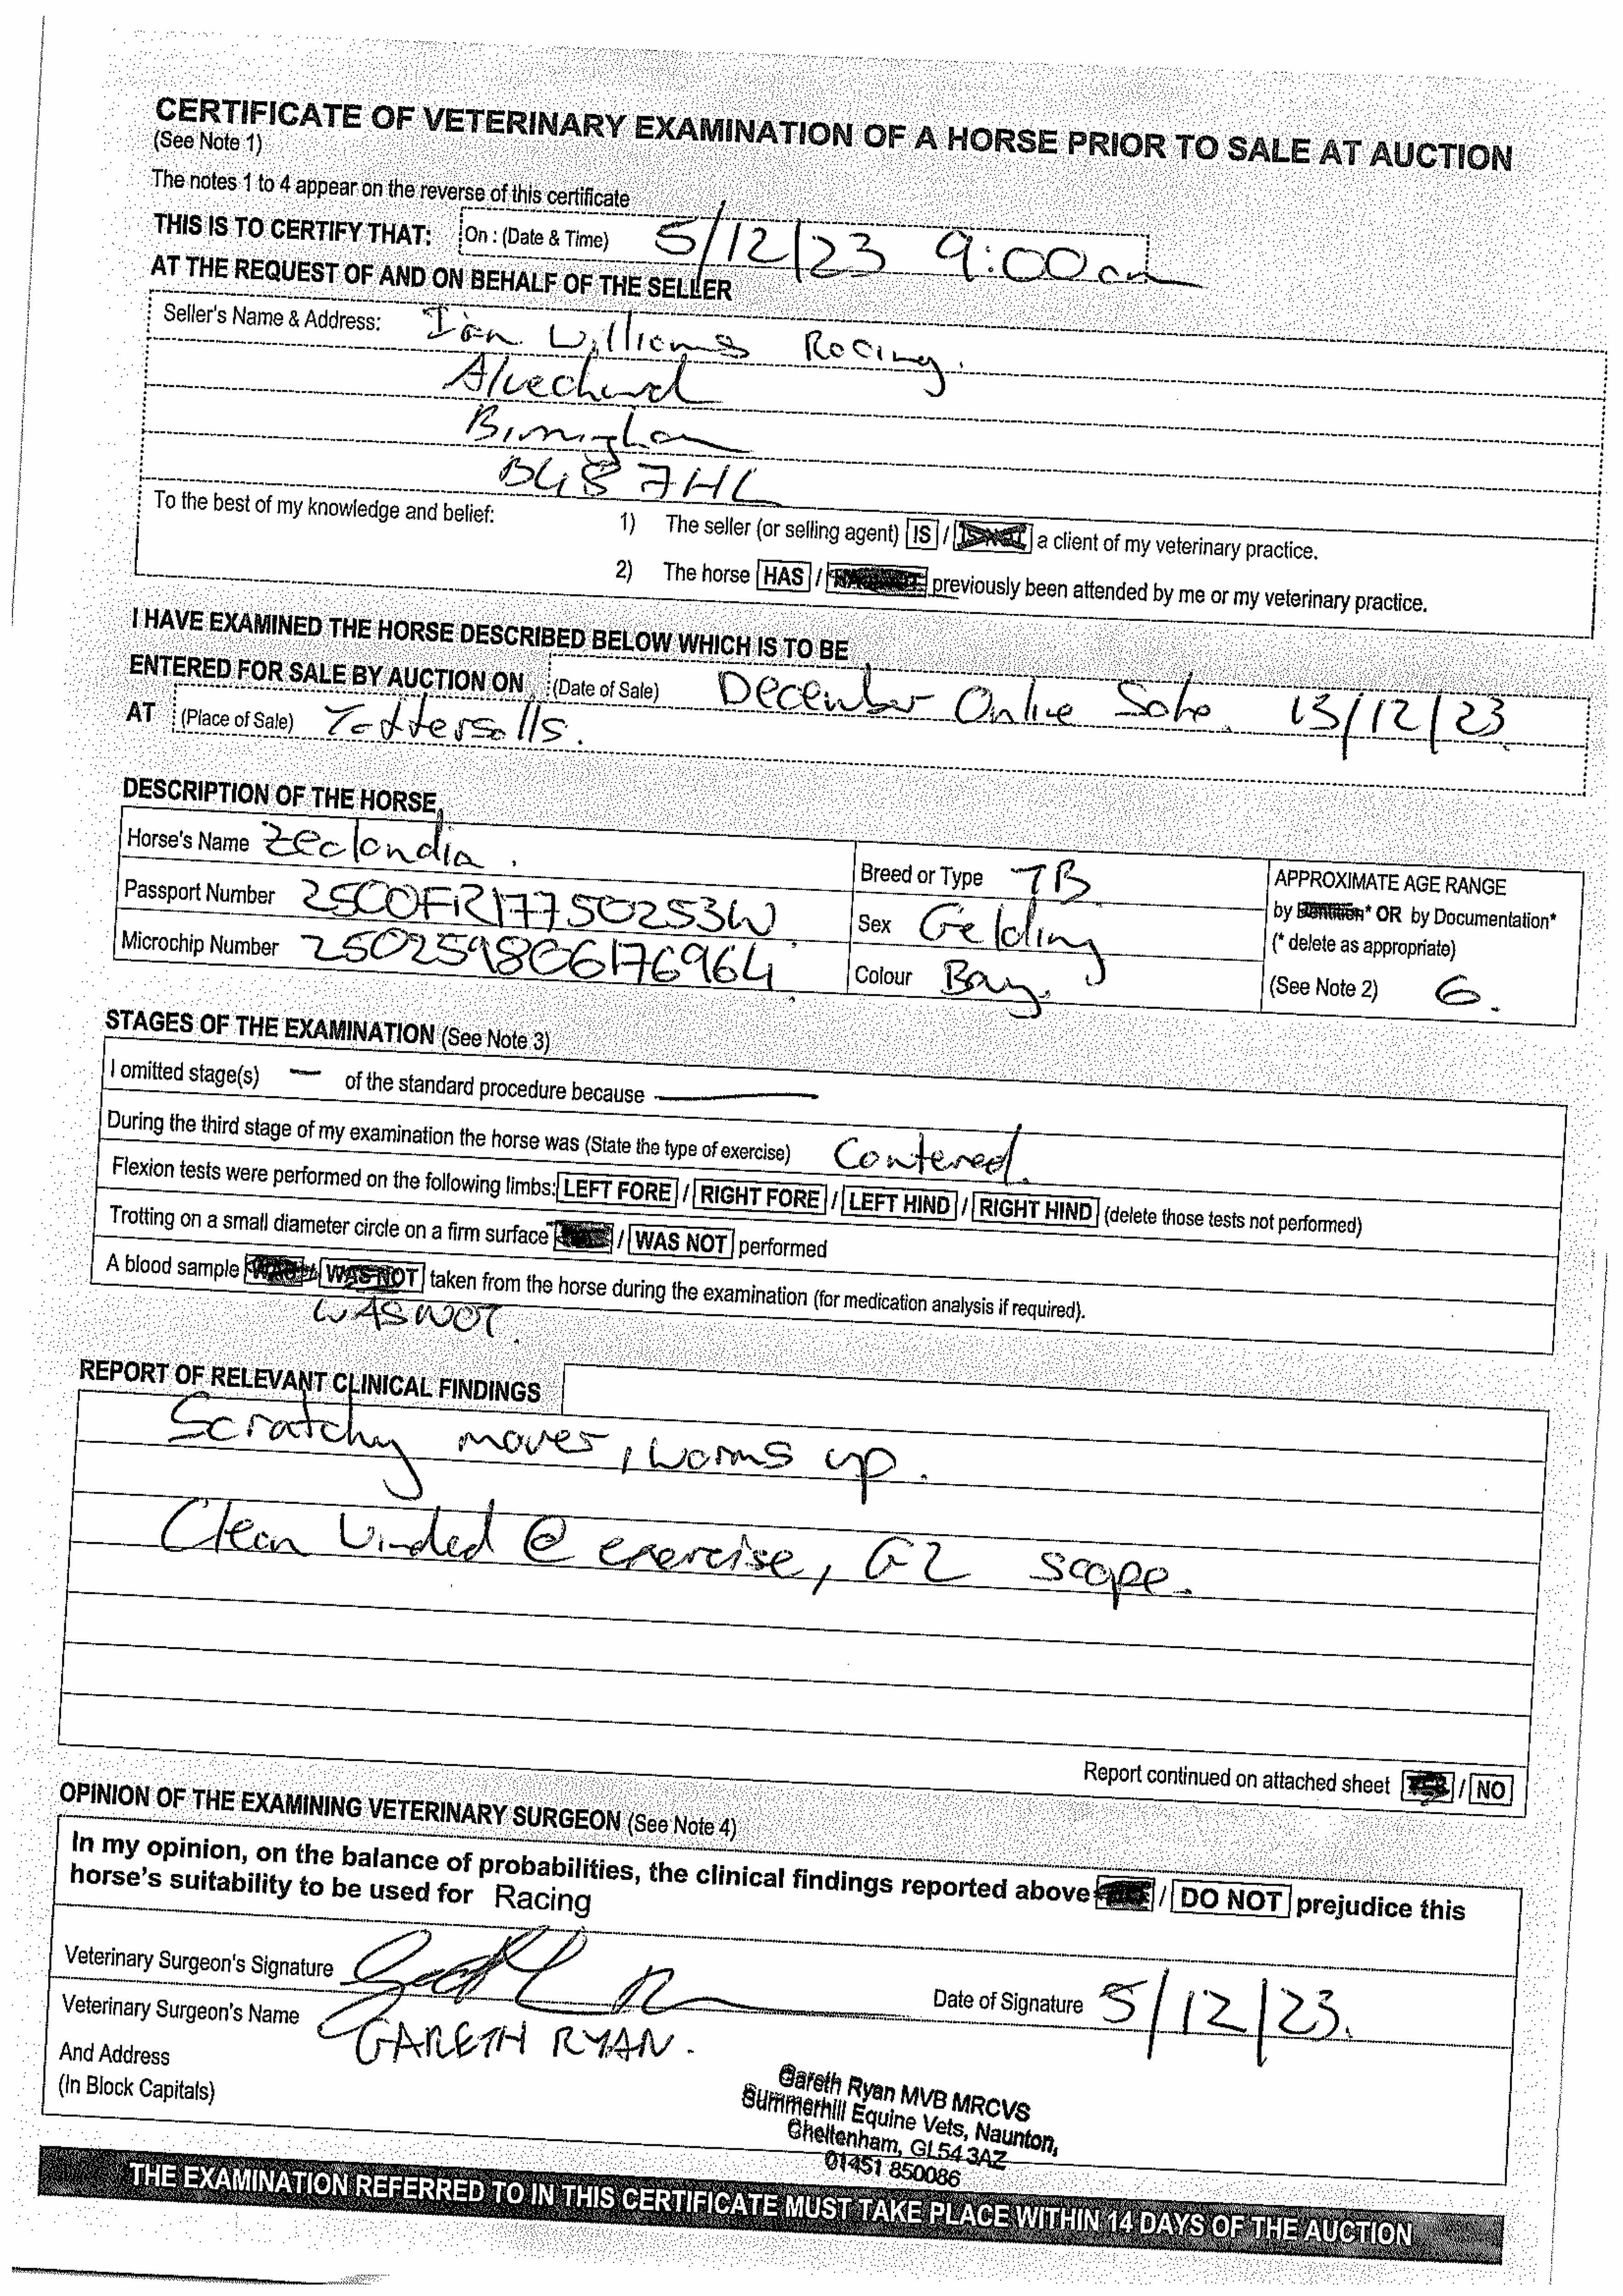 CERTIFICATE OF VETERINARY EXAMINATION OF A HORSE PRIOR TO SALE AT AUCTION
(See Note 1)
The notes 1 to 4 appear on the reverse of this certificate
THIS IS TO CERTIFY THAT: On : (Date & Time) 5/12/23 9:00am
AT THE REQUEST OF AND ON BEHALF OF THE SELLER
Seller's Name & Address: Ian Williams Racing.
Alvechurch
Birmingham
B48 7HL
To the best of my knowledge and belief: 1) The seller (or selling agent) IS / IS NOT a client of my veterinary practice.
2) The horse HAS / previously been attended by me or my veterinary practice.
I HAVE EXAMINED THE HORSE DESCRIBED BELOW WHICH IS TO BE
ENTERED FOR SALE BY AUCTION ON (Date of Sale) December Online Sale. 13/12/23
AT (Place of Sale) Tattersalls.
DESCRIPTION OF THE HORSE
Horse's Name Zealandia. Breed or Type TB APPROXIMATE AGE RANGE
Passport Number 25COFR17750253W. Sex Gelding by Dentition* OR by Documentation*
Microchip Number 250259806176964 Colour Bay. (* delete as appropriate)
(See Note 2) 6.
STAGES OF THE EXAMINATION (See Note 3)
I omitted stage(s) — of the standard procedure because —
During the third stage of my examination the horse was (State the type of exercise) Cantered.
Flexion tests were performed on the following limbs: LEFT FORE / RIGHT FORE / LEFT HIND / RIGHT HIND (delete those tests not performed)
Trotting on a small diameter circle on a firm surface / WAS NOT performed
A blood sample WAS / WAS NOT taken from the horse during the examination (for medication analysis if required).
WAS NOT.
REPORT OF RELEVANT CLINICAL FINDINGS
Scratchy mover, warms up.
Clean winded @ exercise, G2 scope.
Report continued on attached sheet / NO
OPINION OF THE EXAMINING VETERINARY SURGEON (See Note 4)
In my opinion, on the balance of probabilities, the clinical findings reported above / DO NOT prejudice this
horse's suitability to be used for Racing
Veterinary Surgeon's Signature Date of Signature 5/12/23.
Veterinary Surgeon's Name GARETH RYAN.
And Address
(In Block Capitals)
Gareth Ryan MVB MRCVS
Summerhill Equine Vets, Naunton,
Cheltenham, GL54 3AZ
01451 850086
THE EXAMINATION REFERRED TO IN THIS CERTIFICATE MUST TAKE PLACE WITHIN 14 DAYS OF THE AUCTION